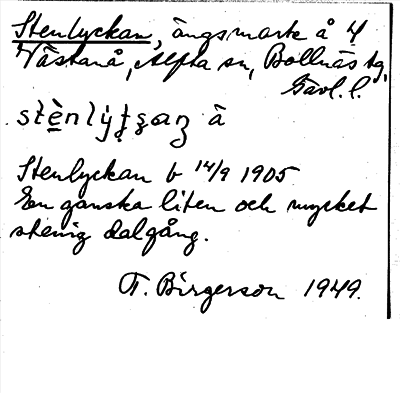 Stenlyckan, ängsmark å 4
Västanå, Alfta sn, Bollnäs tg,
Gävl. l.
stènlỳtʂaʒ å
Stenlyckan b 14/9 1905
En ganska liten och mycket
stenig dalgång.
T. Birgerson 1949.